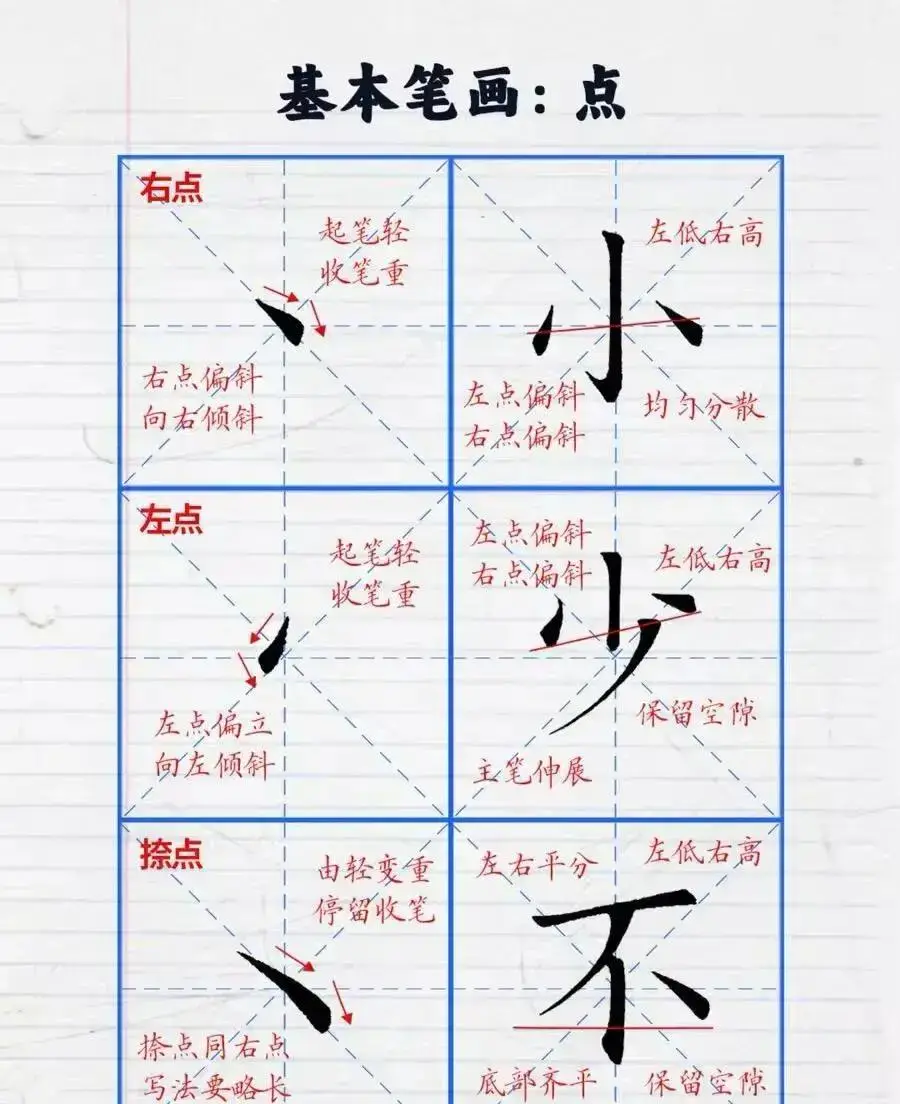 基本笔画：点
右点
起笔轻
收笔重
右点偏斜
向右倾斜
左低右高
小
左点偏斜
右点偏斜
均匀分散
左点
起笔轻
收笔重
左点偏立
向左倾斜
左点偏斜
右点偏斜
左低右高
少
保留空隙
主笔伸展
捺点
由轻变重
停留收笔
捺点同右点
写法要略长
左右平分
左低右高
不
底部齐平
保留空隙